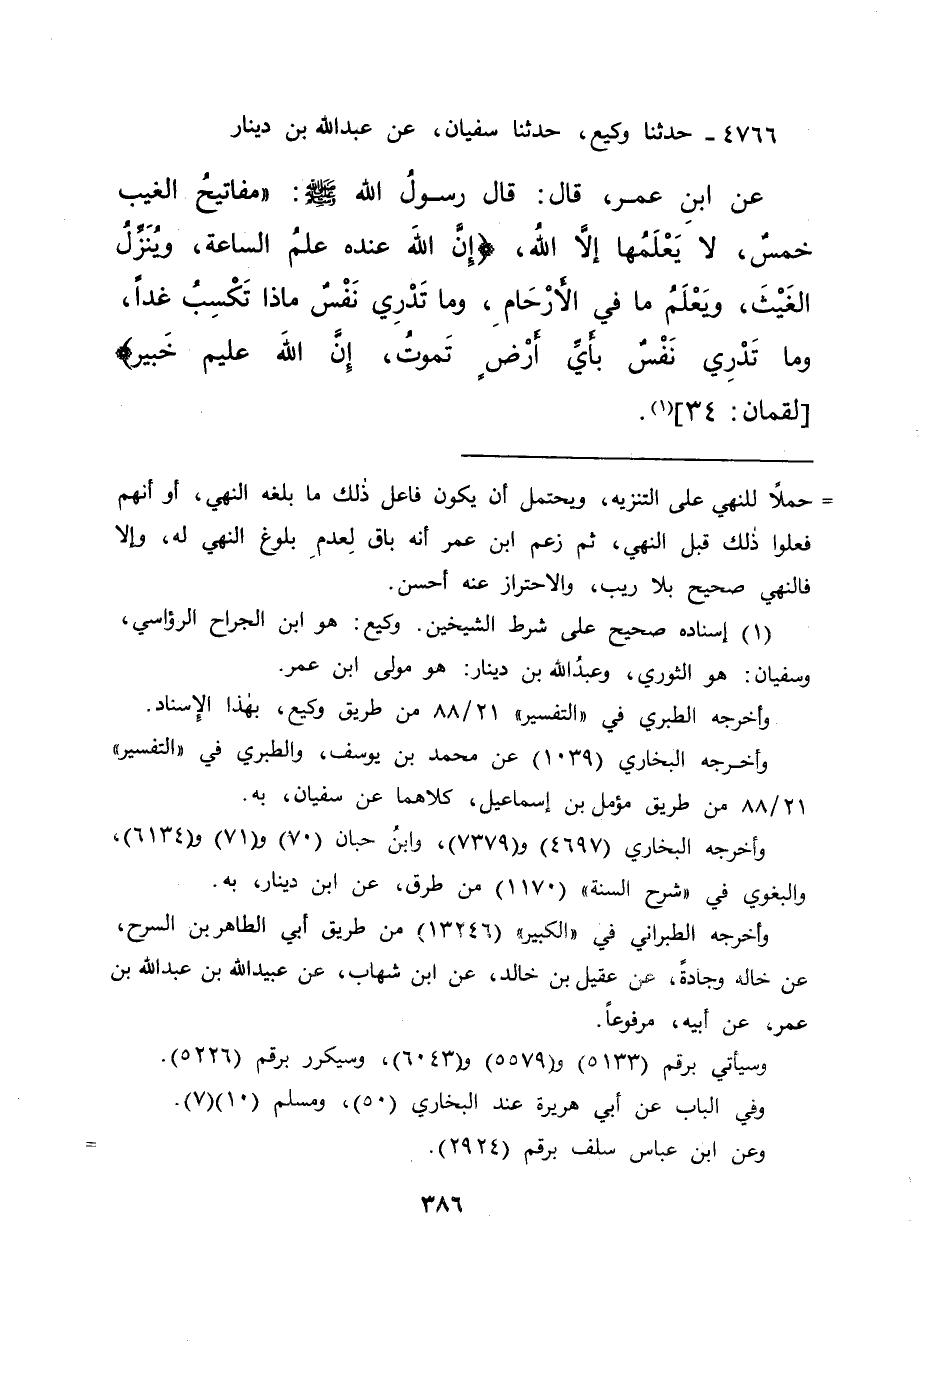 ٤٧٦٦ - حدثنا وكيع، حدثنا سفيان، عن عبدالله بن دينار
عن ابنِ عمـر، قال: قال رسـولُ الله ﷺ: «مفاتيحُ الغيب
خمسٌ، لا يَعْلَمُها إلَّا اللهُ، ﴿إنَّ اللهَ عنده علمُ الساعة، ويُنَزِّلُ
الغَيْثَ، ويَعْلَمُ ما في الأَرْحَامِ، وما تَدْرِي نَفْسٌ ماذا تَكْسِبُ غداً،
وما تَدْرِي نَفْسٌ بأَيِّ أَرْضٍ تَموتُ، إنَّ اللهَ عليم خَبير﴾
[لقمان: ٣٤](١).
= حملًا للنهي على التنزيه، ويحتمل أن يكون فاعل ذٰلك ما بلغه النهي، أو أنهم
فعلوا ذٰلك قبل النهي، ثم زعم ابن عمر أنه باق لِعدمِ بلوغ النهي له، وإلا
فالنهي صحيح بلا ريب، والاحتراز عنه أحسن.
(١) إسناده صحيح على شرط الشيخين. وكيع: هو ابن الجراح الرؤاسي،
وسفيان: هو الثوري، وعبدُالله بن دينار: هو مولى ابن عمر.
وأخرجه الطبري في «التفسير» ٨٨/٢١ من طريق وكيع، بهٰذا الإسناد.
وأخـرجه البخاري (١٠٣٩) عن محمد بن يوسف، والطبري في «التفسير»
٨٨/٢١ من طريق مؤمل بن إسماعيل، كلاهما عن سفيان، به.
وأخرجه البخاري (٤٦٩٧) و(٧٣٧٩)، وابنُ حبان (٧٠) و(٧١) و(٦١٣٤)،
والبغوي في «شرح السنة» (١١٧٠) من طرق، عن ابن دينار، به.
وأخرجه الطبراني في «الكبير» (١٣٢٤٦) من طريق أبي الطاهر بن السرح،
عن خاله وجادةً، عن عقيل بن خالد، عن ابن شهاب، عن عبيدالله بن عبدالله بن
عمر، عن أبيه، مرفوعاً.
وسيأتي برقم (٥١٣٣) و(٥٥٧٩) و(٦٠٤٣)، وسيكرر برقم (٥٢٢٦).
وفي الباب عن أبي هريرة عند البخاري (٥٠)، ومسلم (١٠)(٧).
وعن ابن عباس سلف برقم (٢٩٢٤). =
٣٨٦